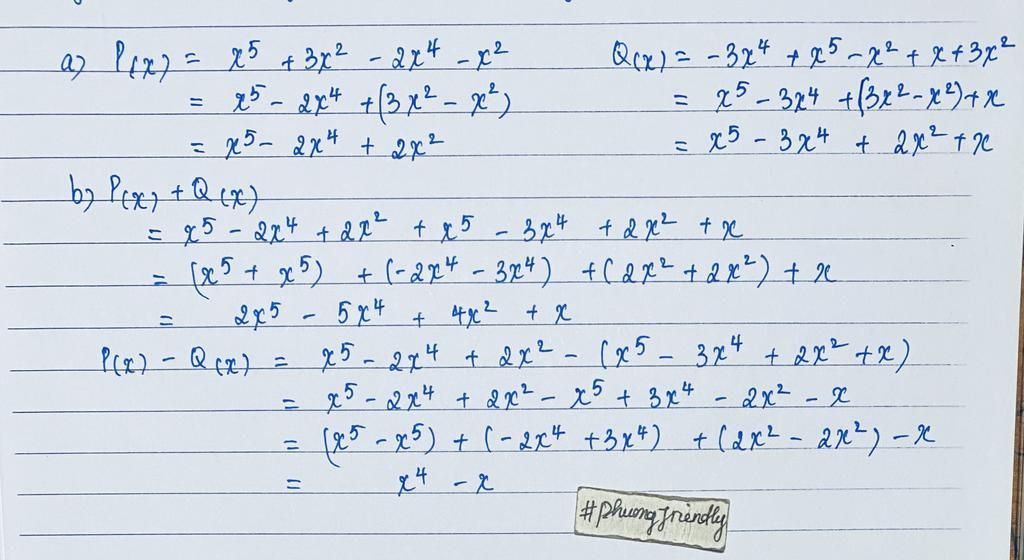 a) P(x) = x⁵ + 3x² - 2x⁴ - x²
= x⁵ - 2x⁴ + (3x² - x²)
= x⁵ - 2x⁴ + 2x²
Q(x) = -3x⁴ + x⁵ - x² + x + 3x²
= x⁵ - 3x⁴ + (3x² - x²) + x
= x⁵ - 3x⁴ + 2x² + x
b) P(x) + Q(x)
= x⁵ - 2x⁴ + 2x² + x⁵ - 3x⁴ + 2x² + x
= (x⁵ + x⁵) + (-2x⁴ - 3x⁴) + (2x² + 2x²) + x
= 2x⁵ - 5x⁴ + 4x² + x
P(x) - Q(x) = x⁵ - 2x⁴ + 2x² - (x⁵ - 3x⁴ + 2x² + x)
= x⁵ - 2x⁴ + 2x² - x⁵ + 3x⁴ - 2x² - x
= (x⁵ - x⁵) + (-2x⁴ + 3x⁴) + (2x² - 2x²) - x
= x⁴ - x
#phuongfriendly